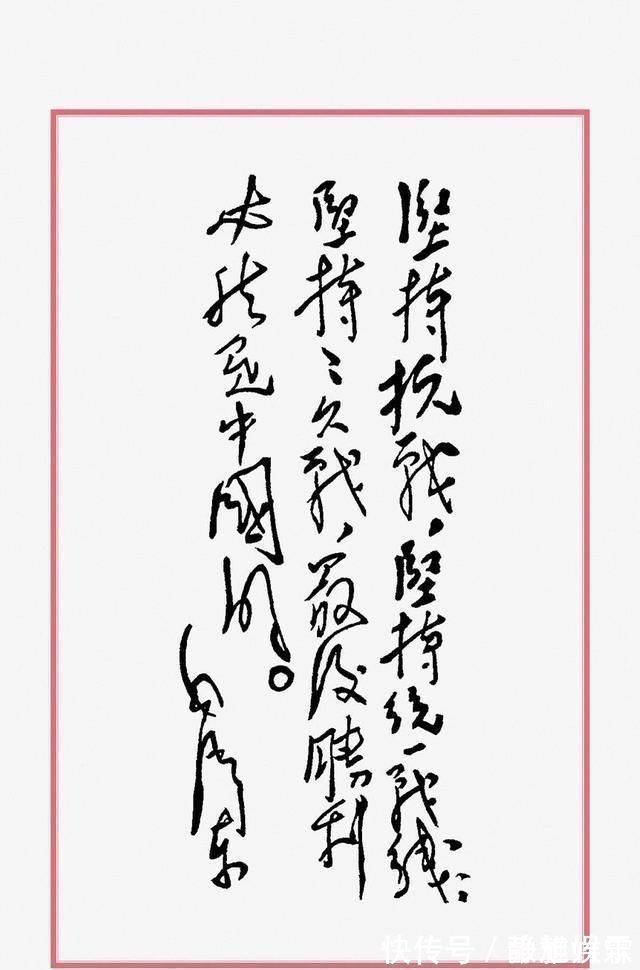 堅持抗戰，堅持統一戰綫，
堅持〻久戰，最後勝利
必然是中國的。
毛澤東
快传号 /